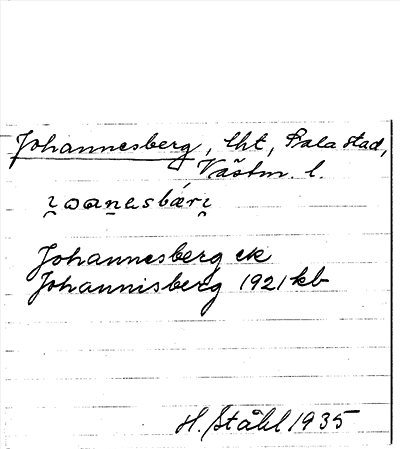 Johannesberg, lht, Sala stad,
Västm. l.
Johannesberg ek
Johannisberg 1921 kb
H. Ståhl 1935